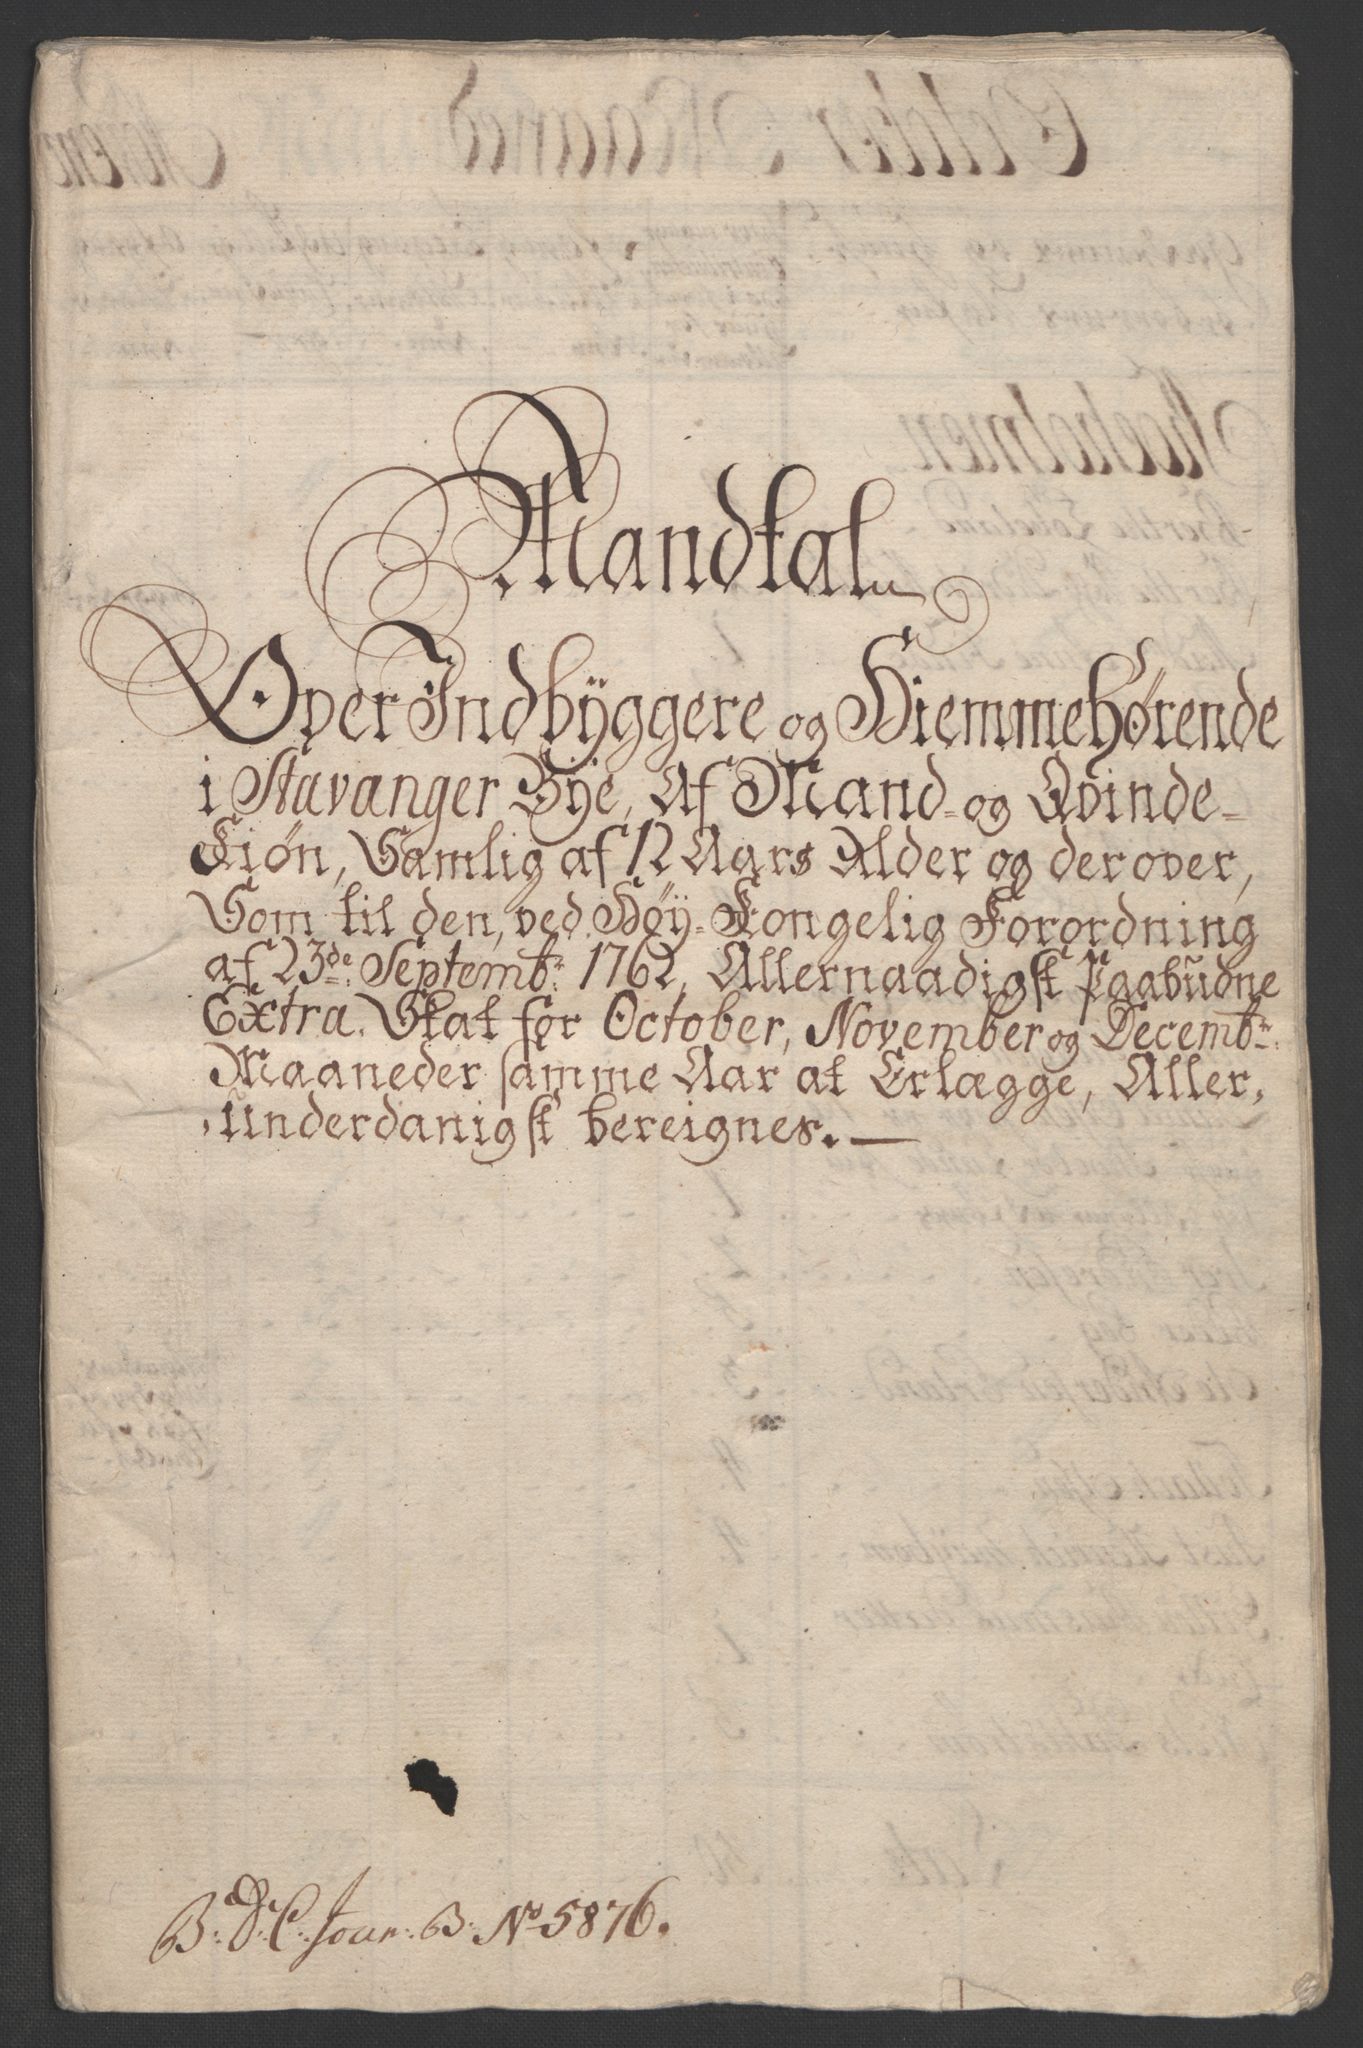 Mandtal
Over Indbÿggere og Hiemmehørende
i Stavanger Bÿe, Af Mand- og Qvinde-
Kiøn, Samlig af 12 Aars Alder og derover,
Som til den, ved Høÿ-Kongelig Forordning
af 23de Septembr: 1762, Allernaadigst Paabudne
Extra. Skat for October, November og Decembr:
Maaneder samme Aar at Erlægge, Aller,
underdanigst bereignes. —
B: D: C: Jour: B: No 5876.